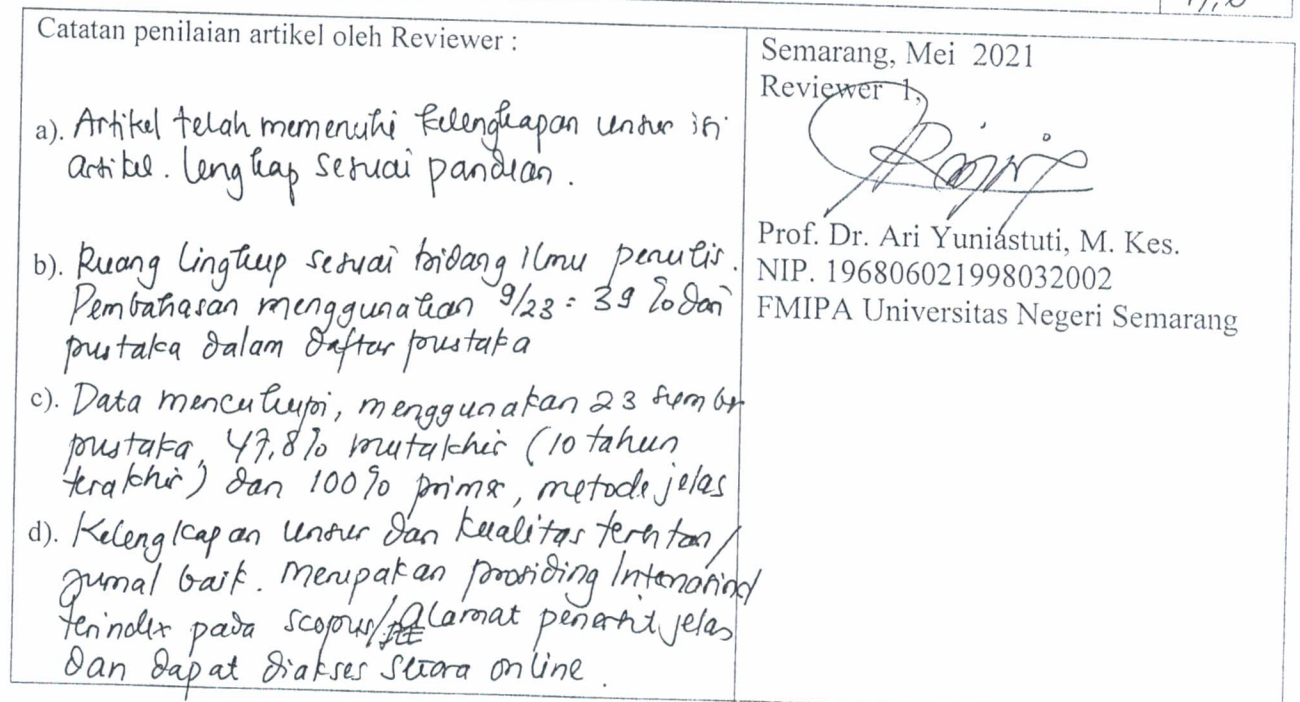 Catatan penilaian artikel oleh Reviewer :
a). Artikel telah memenuhi kelengkapan unsur isi
artikel. lengkap sesuai panduan.
b). Ruang lingkup sesuai bidang ilmu penulis.
Pembahasan menggunakan 9/23 = 39 % dari
pustaka dalam daftar pustaka
c). Data mencukupi, menggunakan 23 sumber
pustaka, 47,8% mutakhir (10 tahun
terakhir) dan 100% primer, metode jelas
d). Kelengkapan unsur dan kualitas terbitan/
jurnal baik. merupakan prosiding Internasional
terindex pada scopus/ alamat penerbit jelas
dan dapat diakses secara online.
Semarang, Mei 2021
Reviewer 1,
Prof. Dr. Ari Yuniastuti, M. Kes.
NIP. 196806021998032002
FMIPA Universitas Negeri Semarang